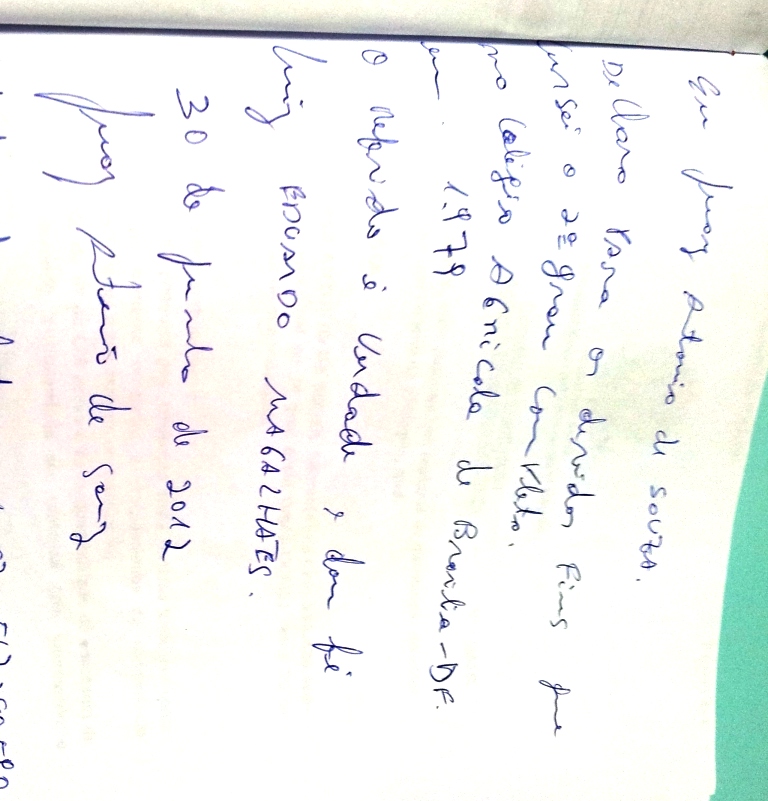 Eu Juarez Antonio de SOUZA.
Declaro Para os devidos Fins que
Cursei o 2º grau Completo.
no Colégio AGRÍCOLA de Brasília-DF.
em. 1.979
O referido é Verdade e dou fé
Luiz EDUARDO MAGALHÃES.
30 de junho de 2012
Antonio de Souza